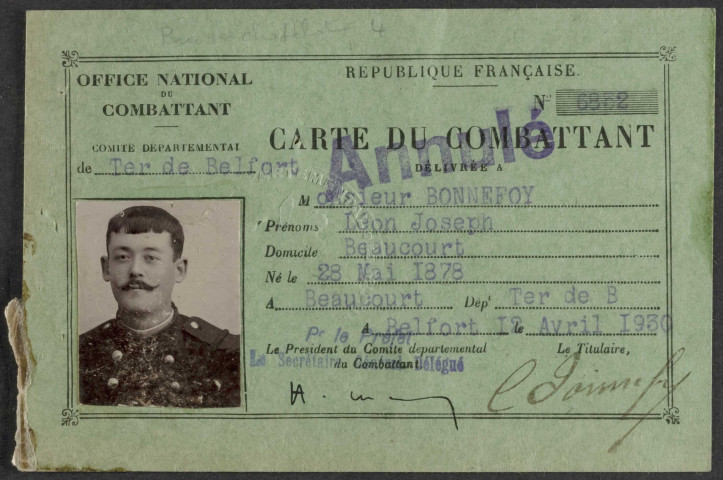 Rue 4
OFFICE NATIONAL
DU
COMBATTANT
COMITÉ DÉPARTEMENTAL
de Ter de Belfort
RÉPUBLIQUE FRANÇAISE.
N° 6882
CARTE DU COMBATTANT
Annulé
DÉLIVRÉE A
Monsieur BONNEFOY
Prénoms Léon Joseph
Domicile Beaucourt
Né le 28 Mai 1878
A Beaucourt Dépt Ter de B
A Belfort 12 le Avril 1930
Pr le Préfet
Le Président du Comité départemental
du Combattant
Le Secrétaire délégué
Le Titulaire,